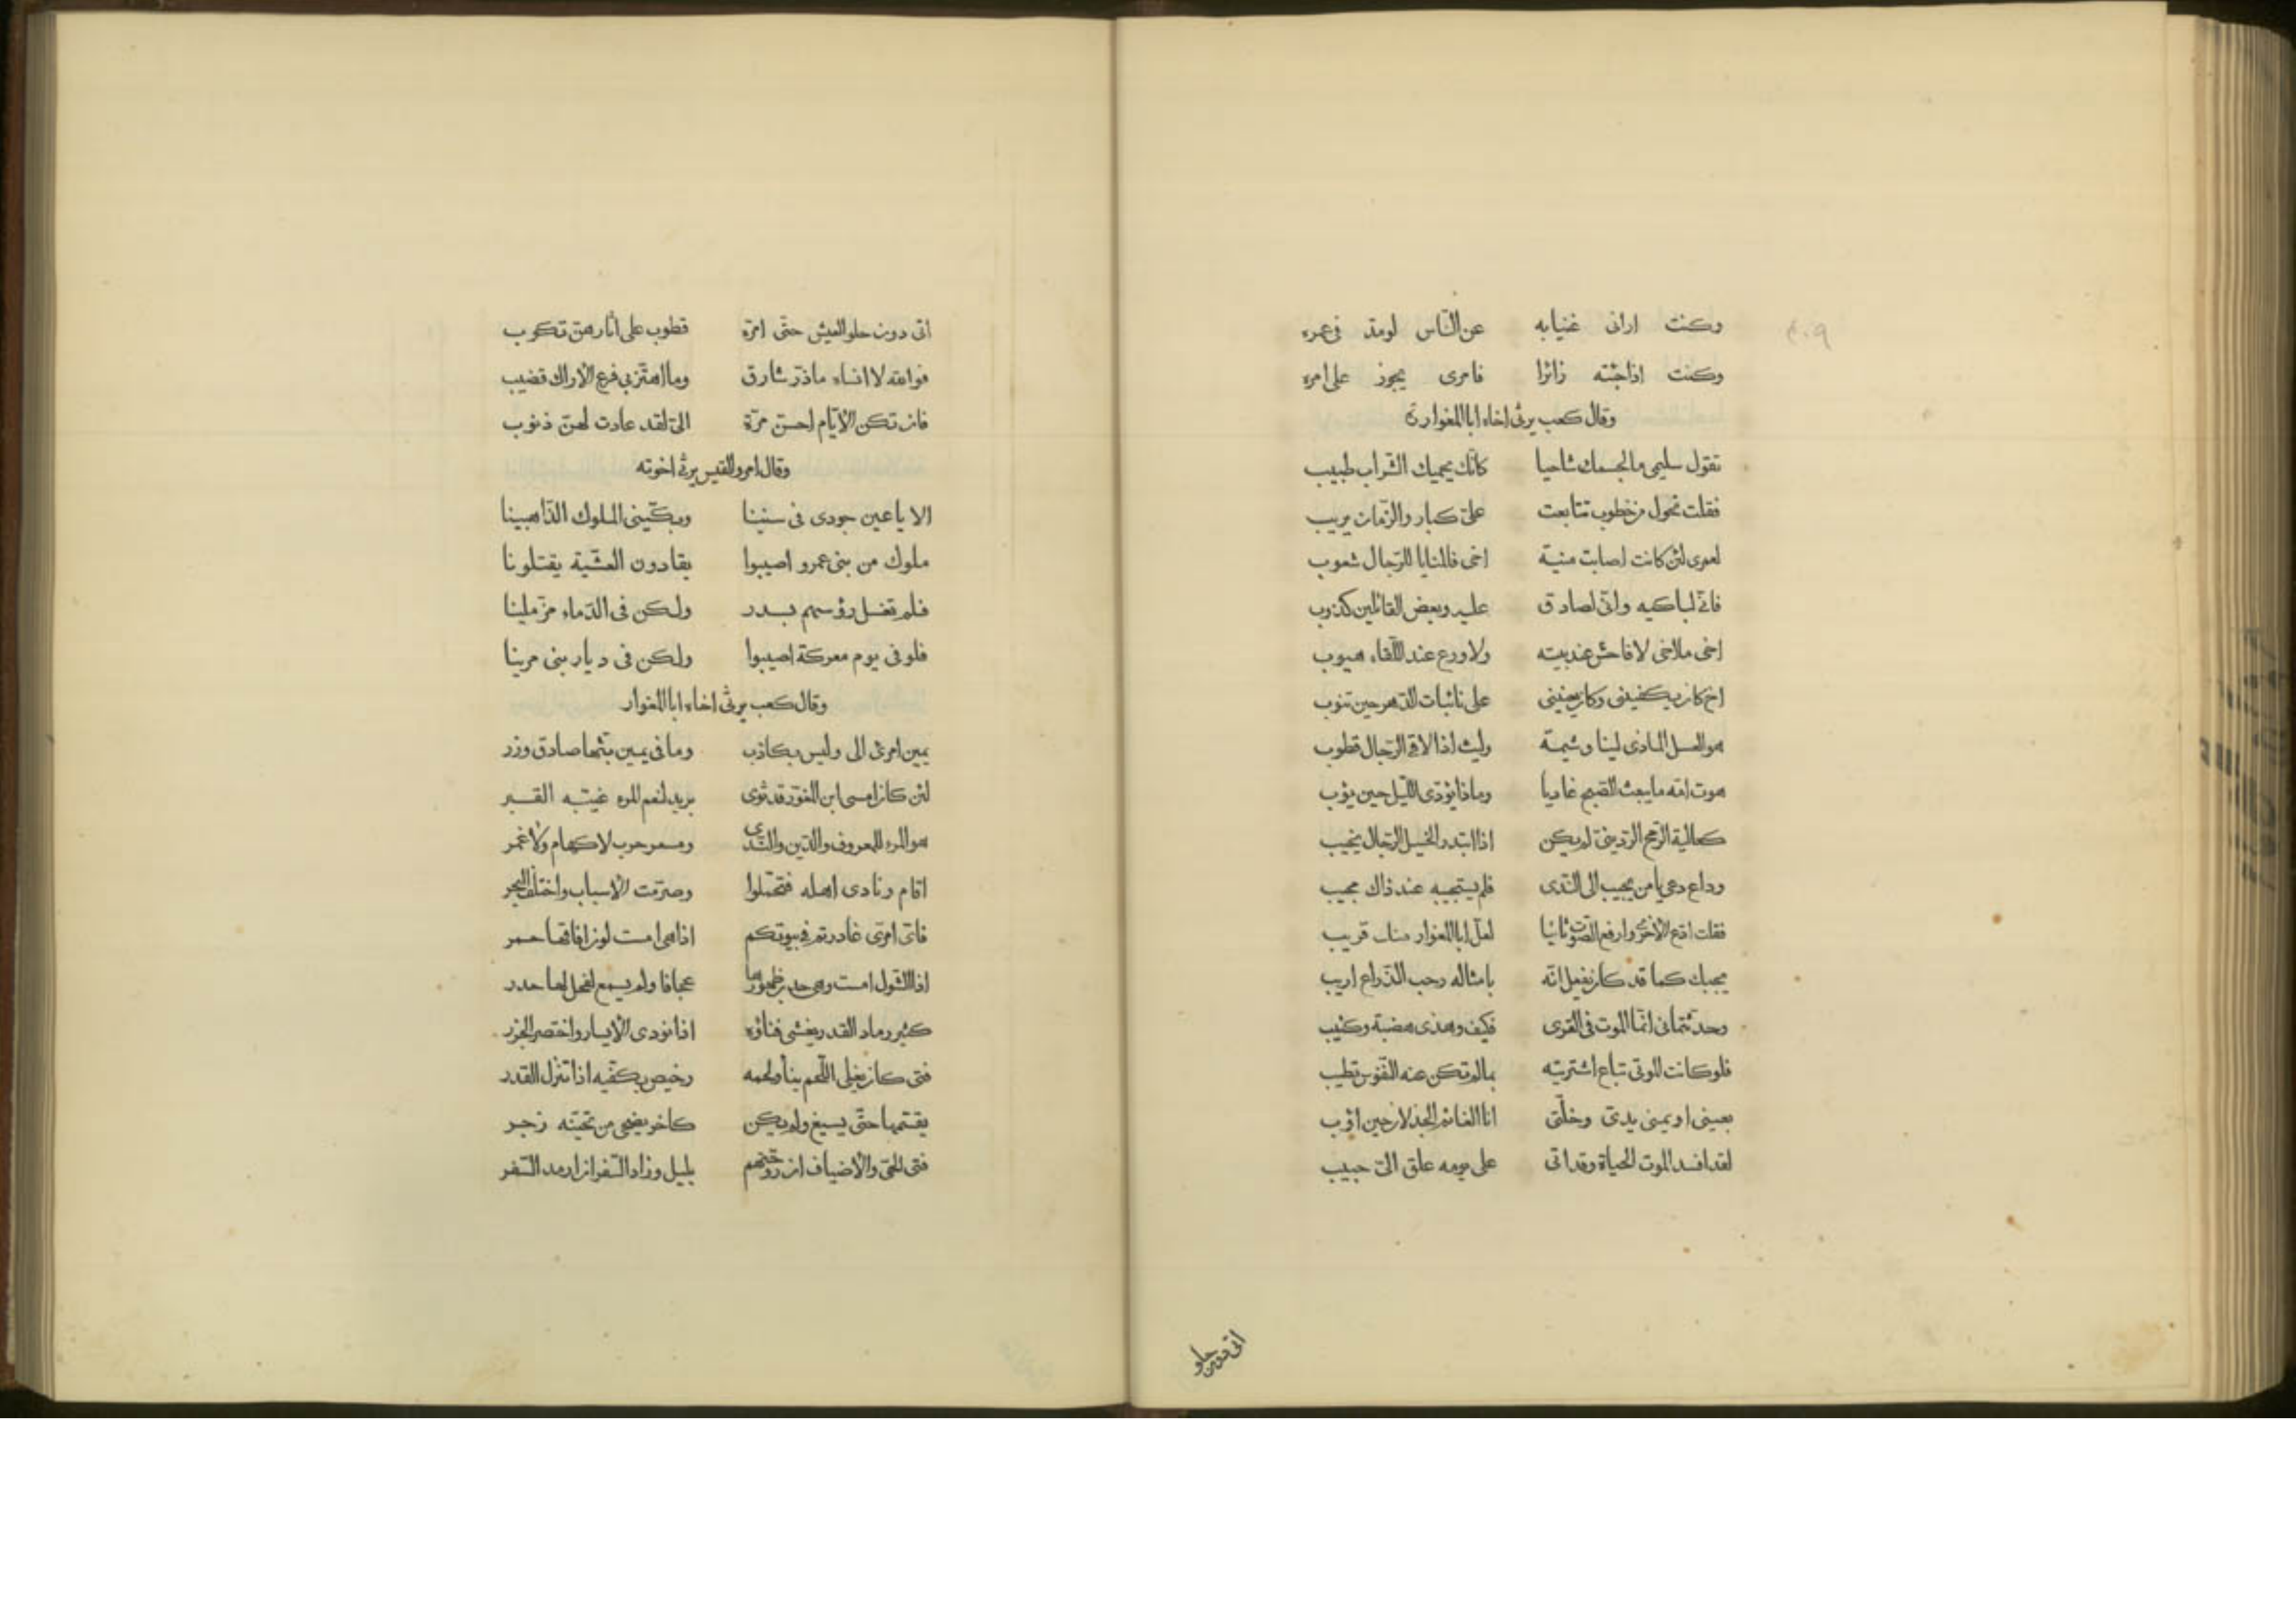 وكنت ارانى غنيا به عن الناس لو مد فى عمره
وكنت اذا جئته زائرا فامرى يجوز على امره
وقال كعب يرثى اخاه ابا المغوار
تقول سليمى ما لجسمك شاحبا كانّك يحميك الشّراب طبيب
فقلت تحول من خطوب تتابعت علىّ كبار والزّمان يريب
لعمرى لئن كانت اصابت منية اخى فالمنايا للرّجال شعوب
فانّى لباكيه وانّى لصادق عليه وبعض القائلين كذوب
اخى ما اخى لا فاحش عند بيته ولا ورع عند اللّقاء هيوب
اخ كان يكفينى وكان يعيننى على نائبات الدّهر حين تنوب
هو العسل الماذى لينا وشيمة وليث اذا لاقى الرّجال قطوب
هوت امّه ما يبعث الصّبح غاديا وما ذا يؤدّى اللّيل حين يؤب
كعالية الرّمح الرّدينىّ لم يكن اذا ابتدر الخيل الرّجال يخيب
وداع دعى يا من يجيب الى النّدى فلم يستجبه عند ذاك مجيب
فقلت ادع الاخرى وارفع الصّوت ثانيا لعلّ ابا المغوار منك قريب
يجبك كما قد كان يفعل انّه بامثاله رحب الذّراع اريب
وحدّثتمانى انّما الموت فى القرى فكيف وهذى هضبة وكثيب
فلو كانت الموتى تباع اشتريته بما لم تكن عنه النّفوس تطيب
بعينى او يمنى يدىّ وخلّتى انا الغانم الجذلان حين اؤب
لقد افسد الموت الحياة وقد اتى على يومه علق الىّ حبيب
اتى دون حلو
اتى دون حلو العيش حتّى امرّه قطوب على آثارهنّ تكوب
فوالله لا انساه ما ذرّ شارق وما اهتزّ بى فرع الاراك قضيب
فان تكن الايّام احسنّ مرّة الىّ لقد عادت لهنّ ذنوب
وقال امرو القيس يرثى اخوته
الا يا عين جودى فى سنينا وبكّينى الملوك الذّاهبينا
ملوك من بنى عمرو اصيبوا يقادون العشّية يقتلونا
فلم تغسل رؤسهم بسدر ولكن فى الدّماء مزمّلينا
فلو فى يوم معركة اصيبوا ولكن فى ديار بنى مرينا
وقال كعب يرثى اخاه ابا المغوار
يمين امرئ الى وليس بكاذب وما فى يمين بثّها صادق وزر
لئن كان امسى ابن المغوّر قد ثوى بريد لنعم المرء غيّبه القبر
هو المرء للمعروف والدّين والنّدى ومسعر حرب لا كهام ولا غمر
اقام ونادى اهله فتحمّلوا وصرّمت الاسباب واختلف النجر
فاىّ امرئ غادرتم فى بيوتكم اذا هى امست لون افاقها حمر
اذا الشّول امست وهى حدب ظهورها عجافا ولم يسمع لفحل لها هدر
كثير رماد القدر يغشى فناؤه اذا نودى الايسار واختصر الجزر
فتى كان يغلى اللّحم نيئا ولحمه رخيص بكفّيه اذا تنزل القدر
يقسّمها حتّى يسيغ ولم يكن كاخر يضحى من تحيّته زجر
فتى الحىّ والاضياف ان روّحتهم بليل وزاد السّفر ان ارمد السّفر